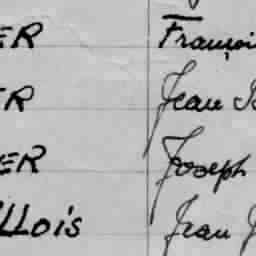 ER Françoi
ER Jean
ER Joseph
LLois Jean